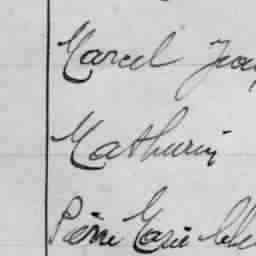 Marcel Jean
Mathurin
Pierre Marie